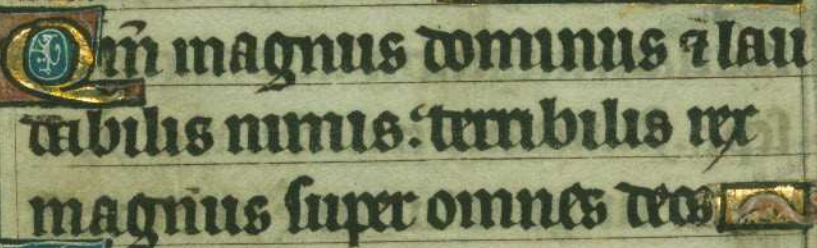 Qm̄ magnus dominus ⁊ lau
dabilis nimis: terribilis rex
magnus super omnes deos